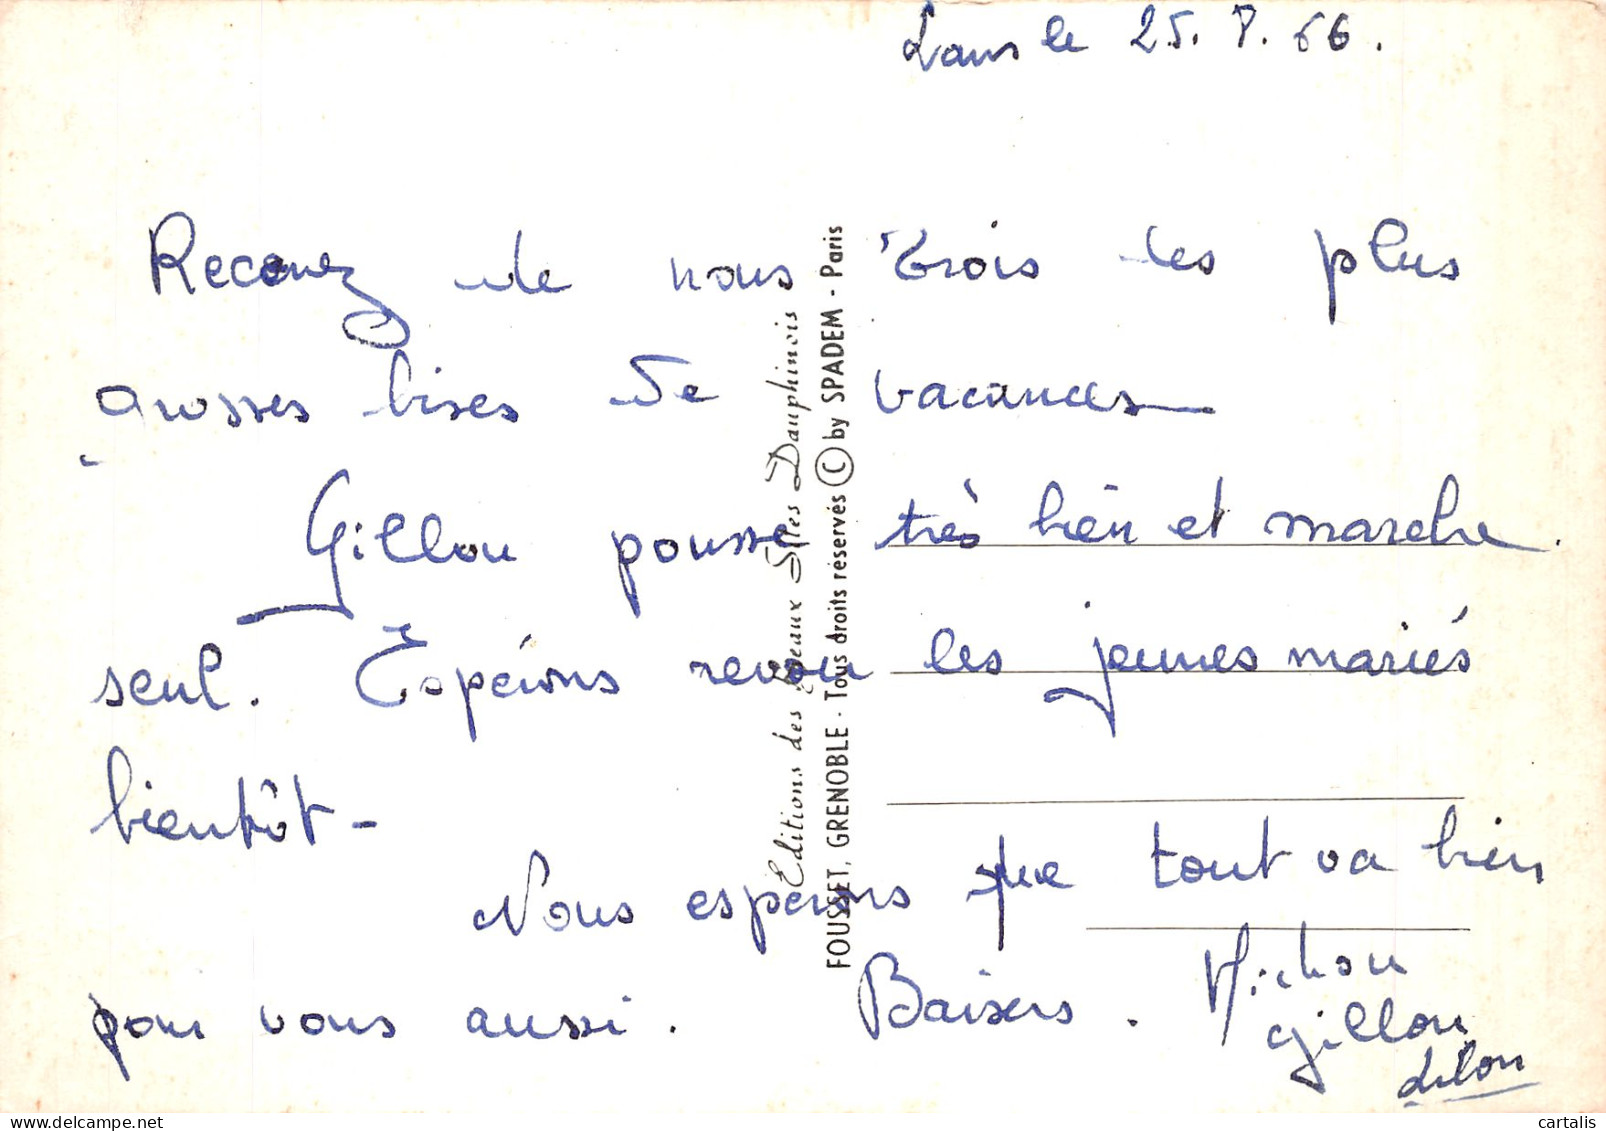 Lans le 25. 8. 66.
Recevez de nous trois les plus
grosses bises de vacances
Gillou pousse très bien et marche
seul. Espérons revoir les jeunes mariés
bientôt -
Nous espérons que tout va bien
pour vous aussi. Baisers. Michou
Gillou
Editions des Beaux Sites Dauphinois
FOUSSET, GRENOBLE - Tous droits réservés © by SPADEM - Paris
cartalis